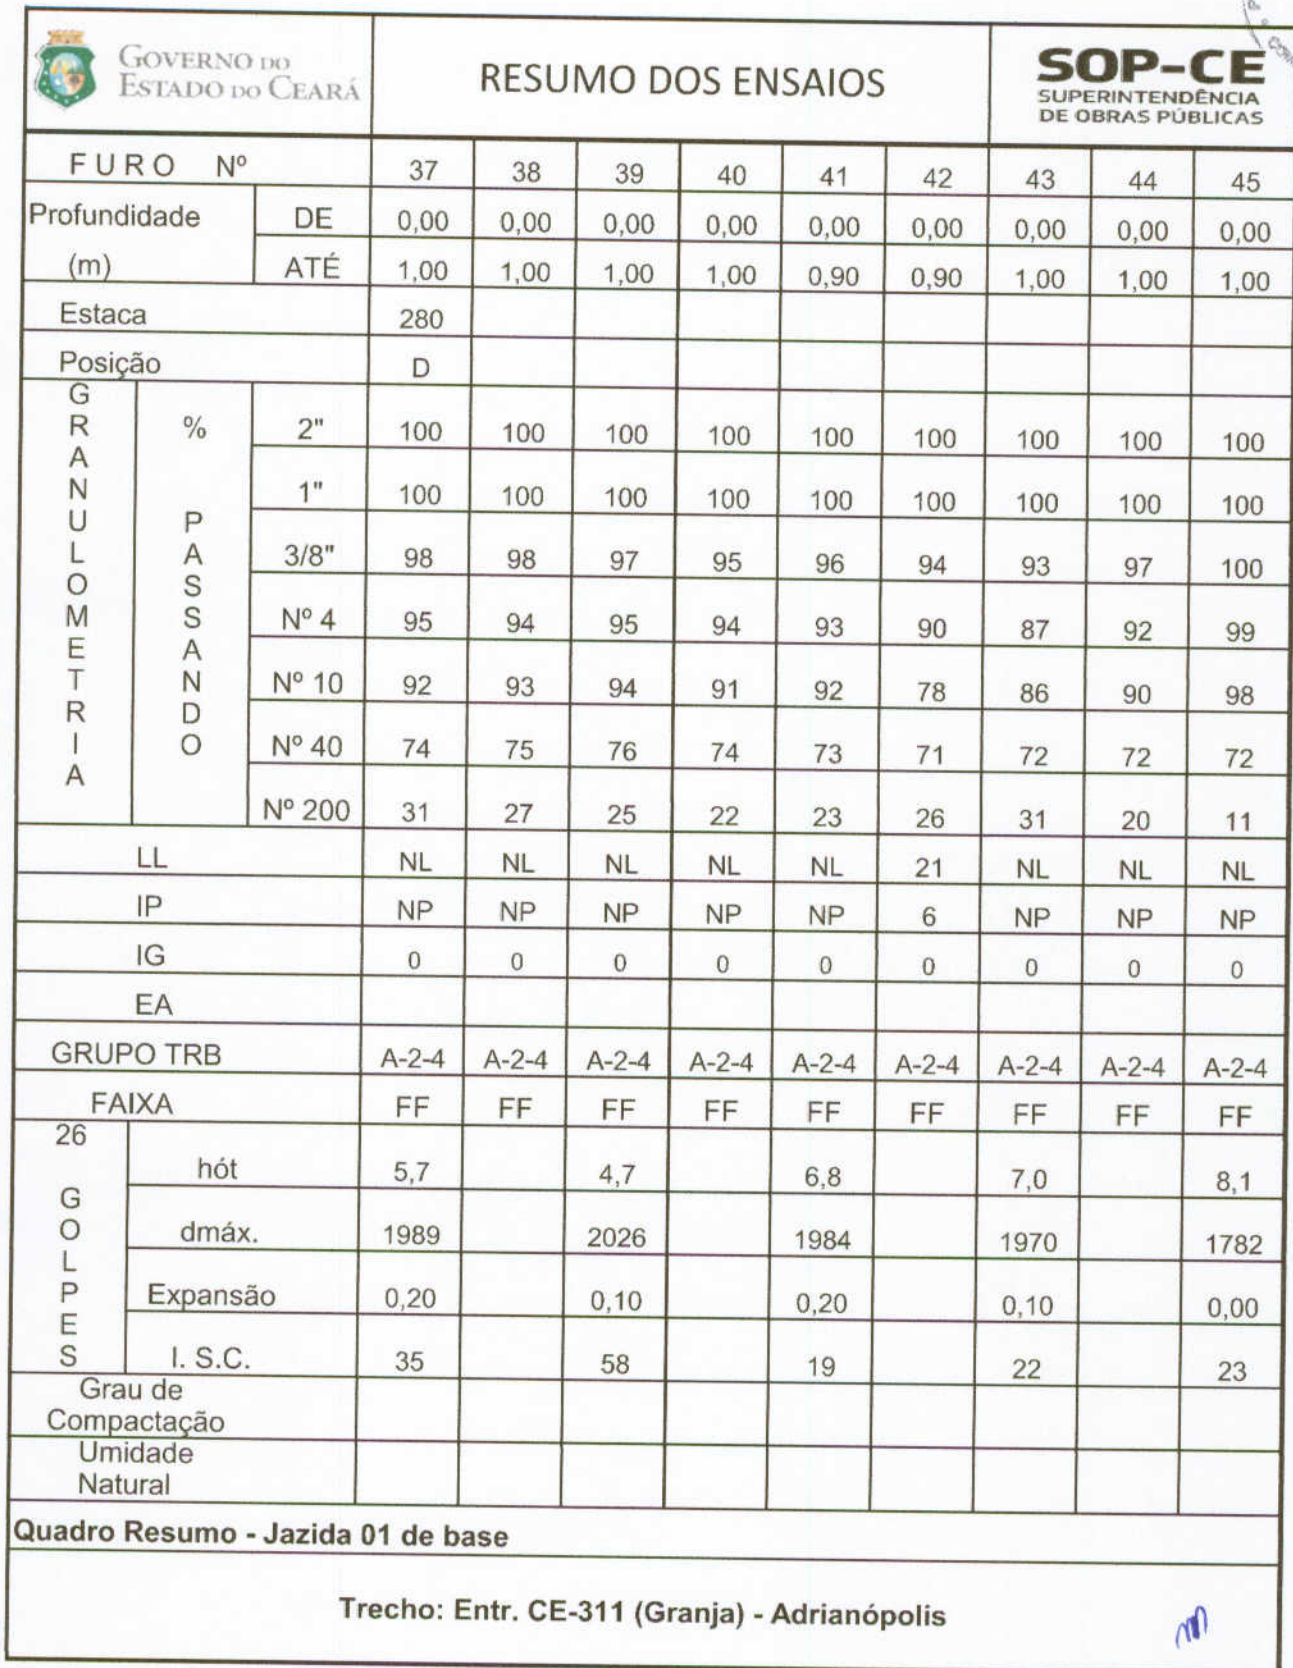 GOVERNO DO
ESTADO DO CEARÁ
RESUMO DOS ENSAIOS
SOP-CE
SUPERINTENDÊNCIA
DE OBRAS PÚBLICAS
FURO Nº 37 38 39 40 41 42 43 44 45
Profundidade (m) DE 0,00 0,00 0,00 0,00 0,00 0,00 0,00 0,00 0,00
ATÉ 1,00 1,00 1,00 1,00 0,90 0,90 1,00 1,00 1,00
Estaca 280
Posição D
GRANULOMETRIA
% PASSANDO
2" 100 100 100 100 100 100 100 100 100
1" 100 100 100 100 100 100 100 100 100
3/8" 98 98 97 95 96 94 93 97 100
Nº 4 95 94 95 94 93 90 87 92 99
Nº 10 92 93 94 91 92 78 86 90 98
Nº 40 74 75 76 74 73 71 72 72 72
Nº 200 31 27 25 22 23 26 31 20 11
LL NL NL NL NL NL 21 NL NL NL
IP NP NP NP NP NP 6 NP NP NP
IG 0 0 0 0 0 0 0 0 0
EA
GRUPO TRB A-2-4 A-2-4 A-2-4 A-2-4 A-2-4 A-2-4 A-2-4 A-2-4 A-2-4
FAIXA FF FF FF FF FF FF FF FF FF
26 GOLPES
hót 5,7 4,7 6,8 7,0 8,1
dmáx. 1989 2026 1984 1970 1782
Expansão 0,20 0,10 0,20 0,10 0,00
I. S.C. 35 58 19 22 23
Grau de
Compactação
Umidade
Natural
Quadro Resumo - Jazida 01 de base
Trecho: Entr. CE-311 (Granja) - Adrianópolis